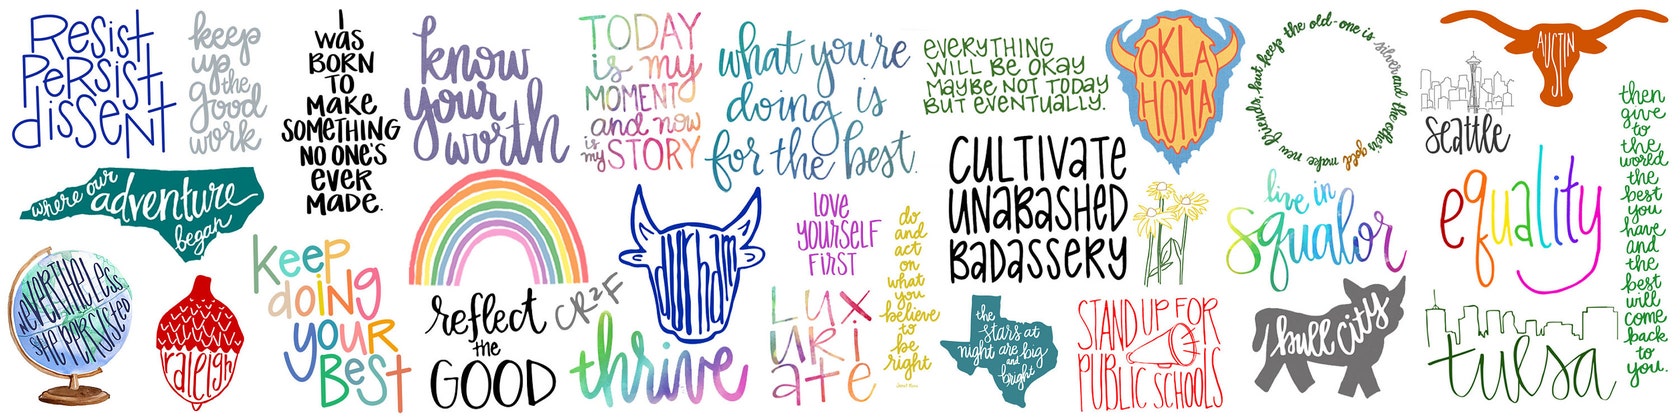 Resist,
Persist,
dissent
keep
up the
good
work
I
WAS
BORN
TO
MAKE
SOMETHING
NO ONE'S
EVER
MADE.
know
your
worth
TODAY
is my
MOMENT
and now
is my STORY
what you're
doing is
for the best.
EVERYTHING
WILL BE OKAY
MAYBE NOT TODAY
BUT EVENTUALLY.
OKLA
HOMA
make new friends, but keep the old-one is silver and the other's gold
AUSTIN
seattle
then
give
to
the
world
the
best
you
have
and
the
best
will
come
back
to
you.
where our
adventure
began
nevertheless
she persisted
raleigh
keep
doing
your
Best
reflect
the
GOOD
CR2F
durham
thrive
LOVE
YOURSELF
FIRST
LUX
URI
ATE
do
and
act
on
what
you
believe
to
be
right
CULTIVATE
UNABASHED
BADASSERY
the
stars at
night are big
and
bright
STAND UP FOR
PUBLIC SCHOOLS
live in
squalor
bull city
equality
tulsa